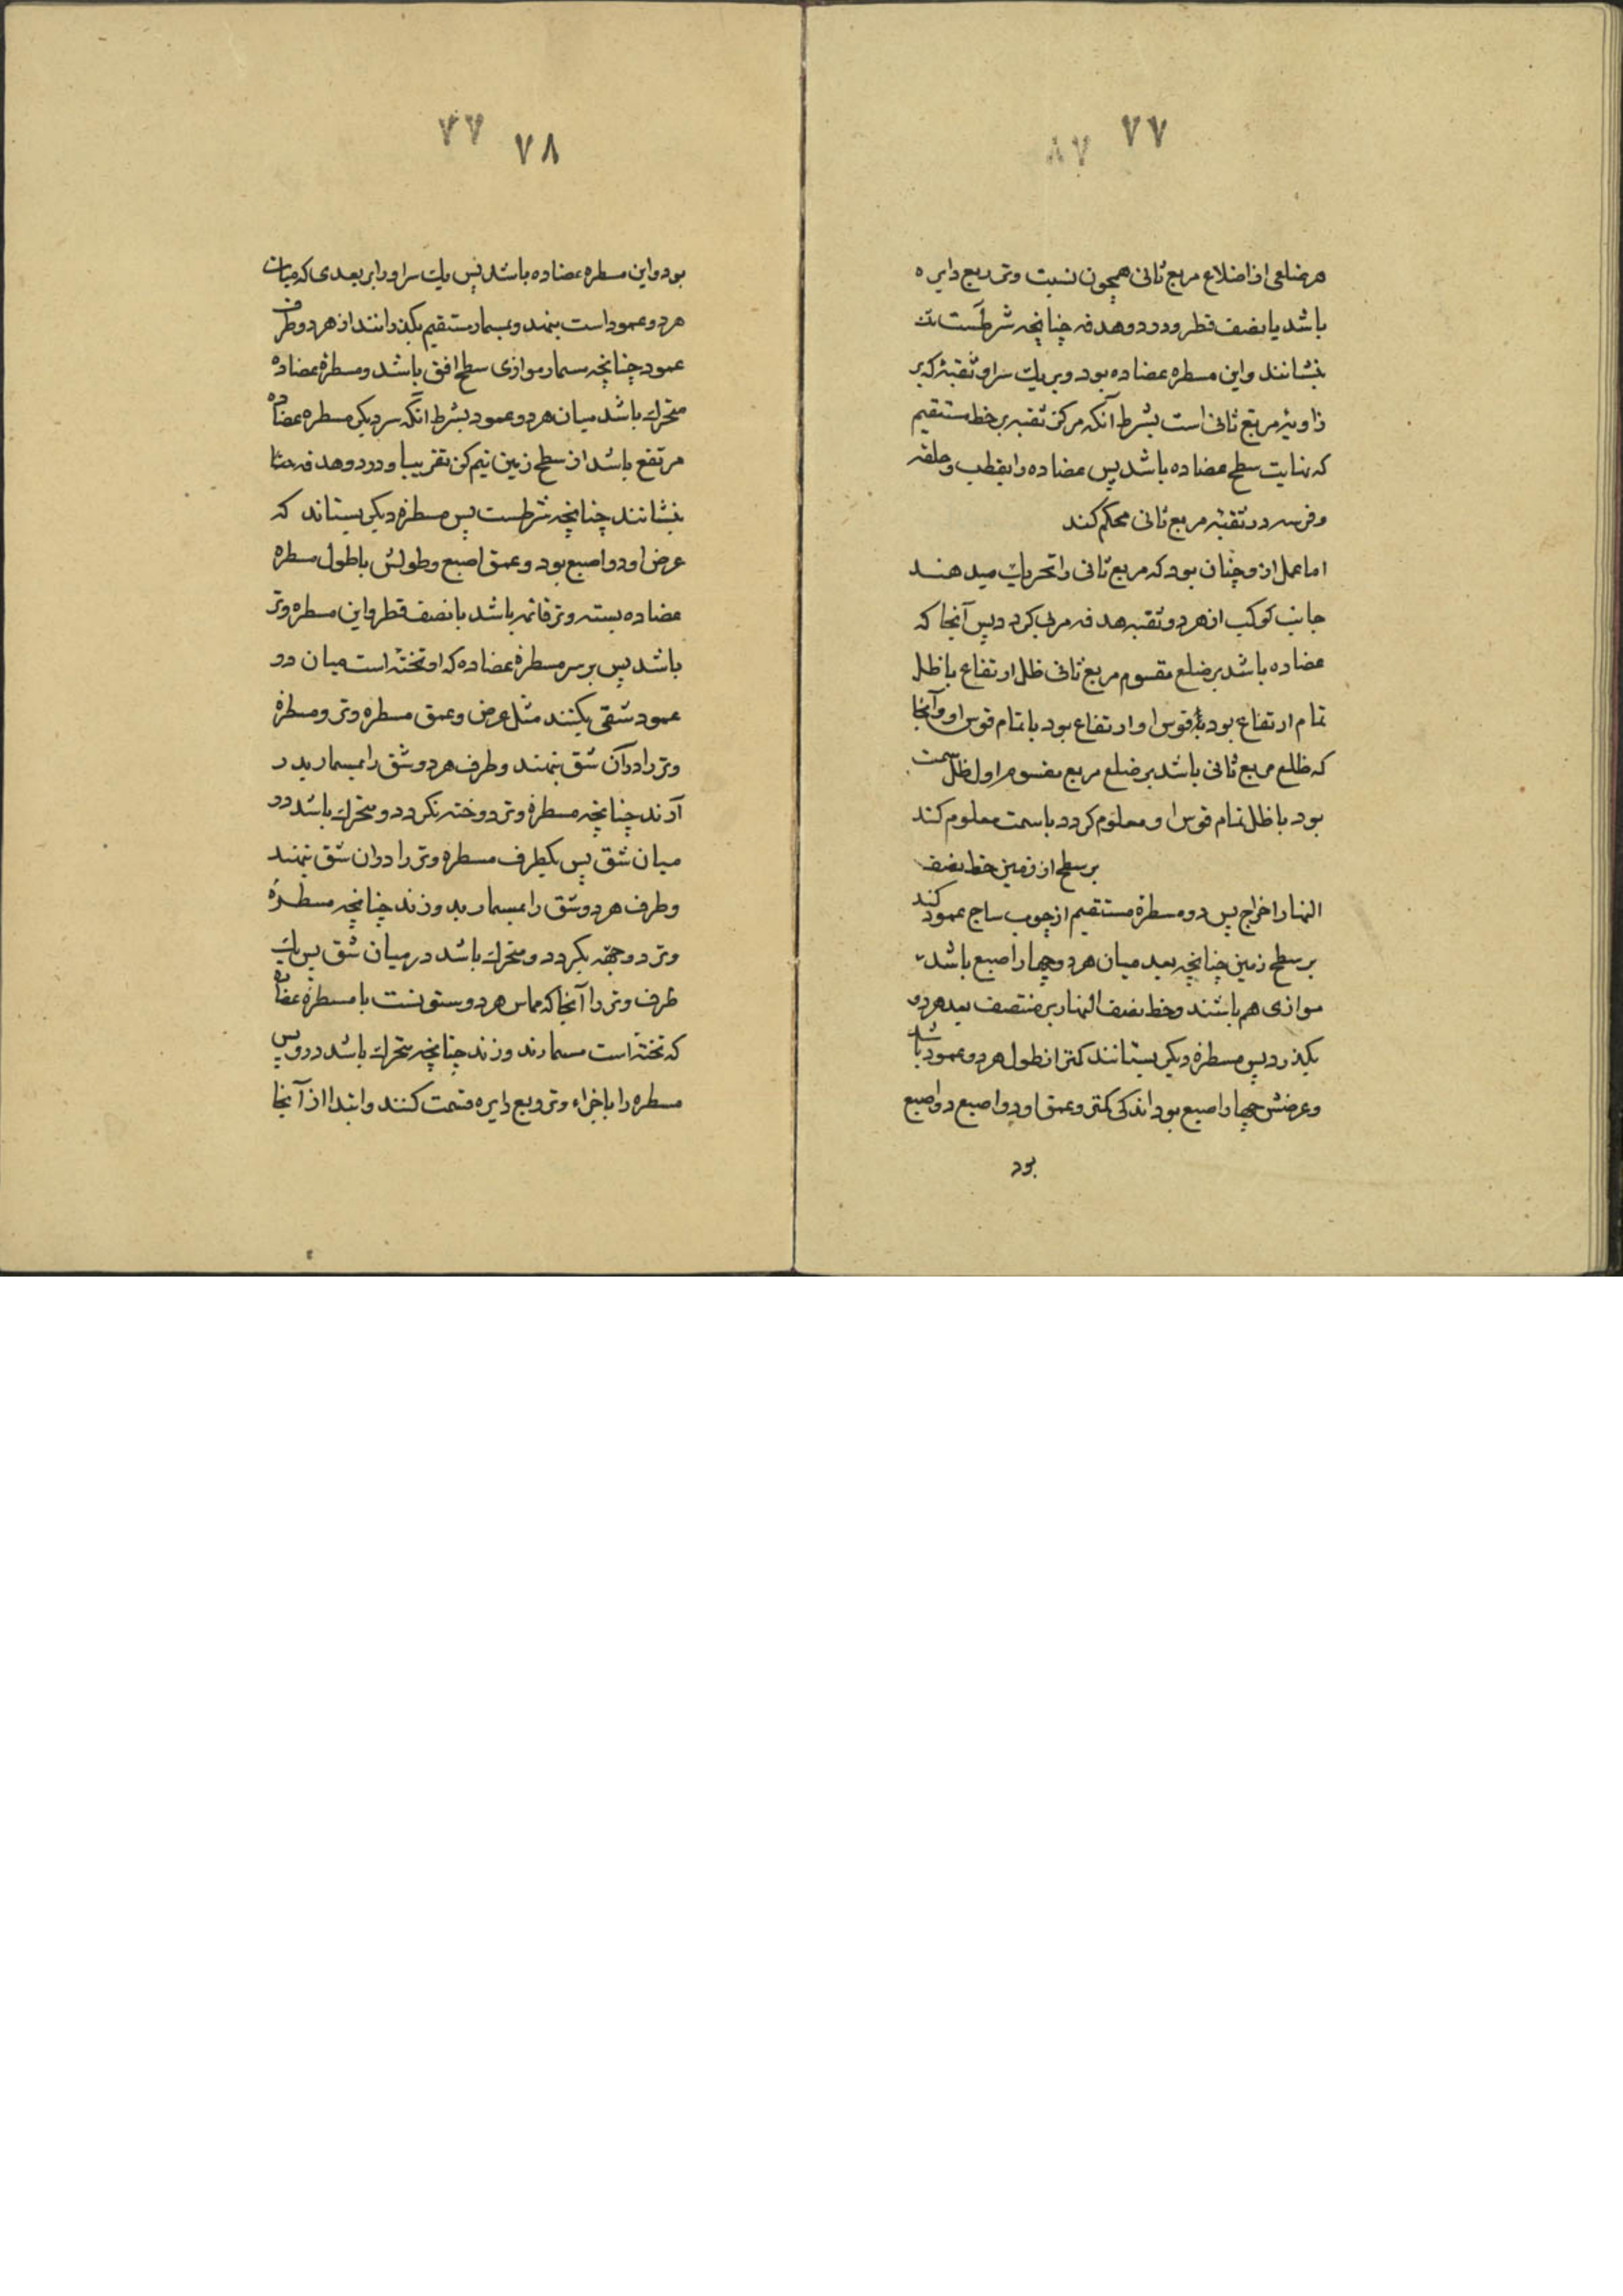 ٧٧
هر ضلعی از اضلاع مربع ثانی همچون نسبت وتر ربع دایره
باشد با نصف قطر و درو دو هدفه چنانچه شرطست
بنشانند و این مسطره عضاده بود و بر یک سر او ثقبهٔ که بر
زاویهٔ مربع ثانی است بشرط آنکه مرکز ثقبه بر خط مستقیم
که نهایت سطح عضاده باشد پس عضاده را بقطب و حلقه
و فرس در ثقبهٔ مربع ثانی محکم کند
اما عمل ازو چنان بود که مربع ثانی را تحریک میدهند
جانب کوکب از هر دو ثقبه هدفه مریی کردد پس آنجا که
عضاده باشد بر ضلع مقسوم مربع ثانی ظل ارتفاع یا ظل
تمام ارتفاع بود قوس او ارتفاع بود یا تمام قوس او و آنجا
که ظلع مربع ثانی باشد بر ضلع مربع مقسوم اول ظل سمت
بود یا ظل تمام قوس او معلوم کردد یا سمت معلوم کند
بر سطح از زمین خط نصف
النهار اخراج پس دو مسطرهٔ مستقیم از چوب ساج عمود کند
بر سطح زمین چنانچه بعد میان هر دو چهار اصبع باشد
موازی هم باشند و خط نصف النهار بر منتصف بعد هر دو
بکذرد پس مسطرهٔ دیکر بستانند کمتر از طول هر دو عمود باشد
و عرضش چهار اصبع بود اندکی کمتر و عمق او دو اصبع دو اصبع
بود
٧٨
بود و این مسطره عضاده باشد پس یک سر او را بر بعدی که میان
هر دو عمود است بنهند و بمسمار مستقیم بکذرانند از هر دو طرف
عمود چنانچه مسمار موازی سطح افق باشد و مسطرهٔ عضاده
متحرک باشد میان هر دو عمود بشرط آنکه سر دیکر مسطره عضاده
مرتفع باشد از سطح زمین نیم کز تقریبا و درو دو هدفه
بنشانند چنانچه شرطست پس مسطرهٔ دیکر بستاند که
عرض او دو اصبع بود و عمق اصبع و طولش با طول مسطره
عضاده بسته وتر قائمه باشد با نصف قطر و این مسطره وتر
باشد پس بر سر مسطرهٔ عضاده که او تختهٔ است میان دو
عمود شقی بکنند مثل عرض و عمق مسطره وتر و مسطرهٔ
وتر را در آن شق بنهند و طرف هر دو شق را بمسمار بدر
آرند چنانچه مسطرهٔ وتر دوخته نکردد و متحرک باشد در
میان شق پس یکطرف مسطره وتر را در ان شق بنهند
و طرف هر دو شق را بمسمار بدوزند چنانچه مسطرهٔ
وتر دوخته نکردد و متحرک باشد در میان شق پس یک
طرف وتر را آنجا که مماس هر دو ستونست با مسطرهٔ عضاده
که تخته است مسمار زند وزند چنانچه متحرک باشد درو پس
مسطره را باجزاء وتر ربع دایره قسمت کنند و ابتدا از آنجا